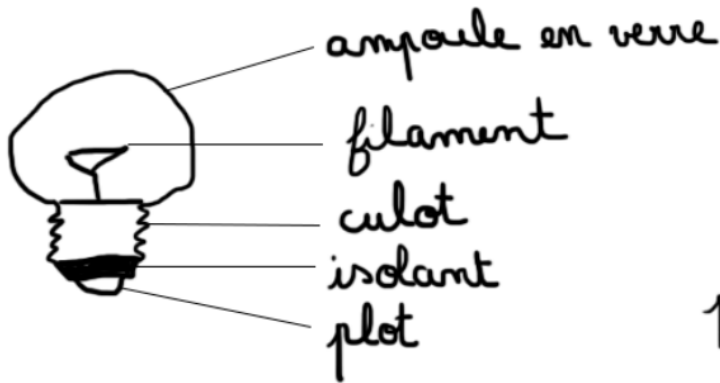 ampoule en verre
filament
culot
isolant
plot